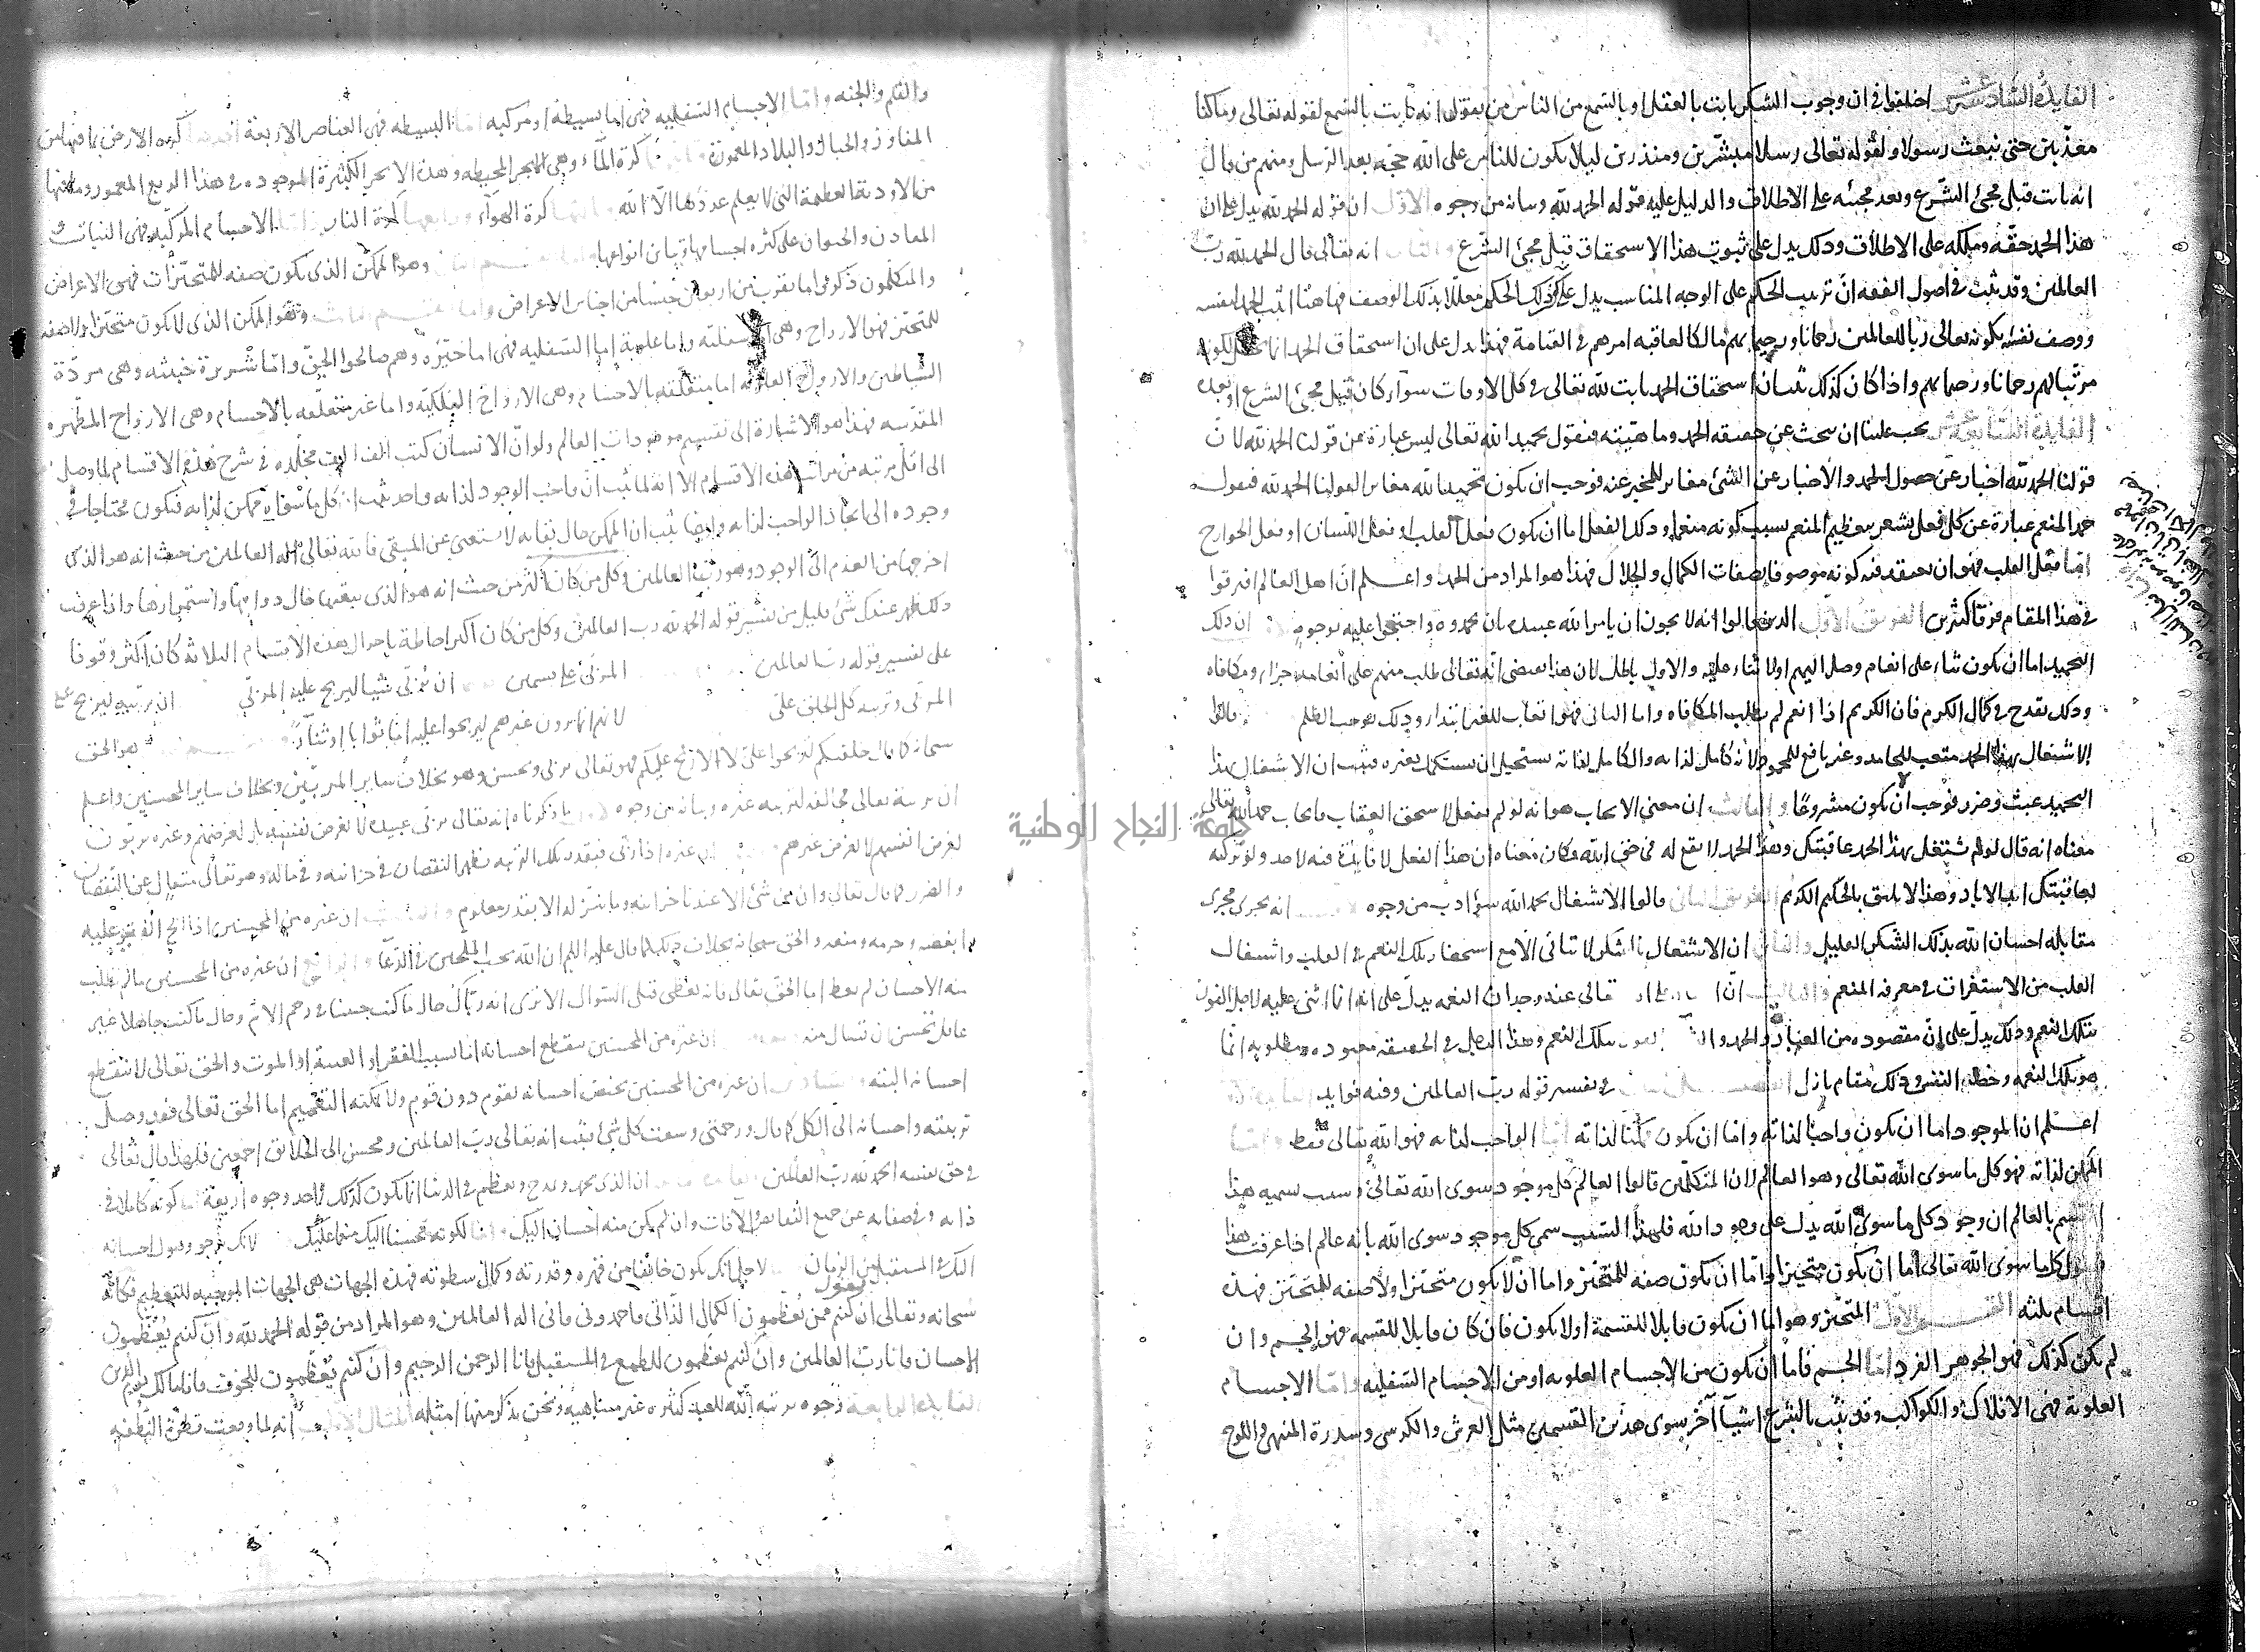 الفايدة السادسة عشر اختلفوا في ان وجوب الشكر ثابت بالعقل او بالسمع من الناس من يقول انه ثابت بالسمع لقوله تعالى وما كنا
معذبين حتى نبعث رسولا ولقوله تعالى رسلا مبشرين ومنذرين ليلا يكون للناس على الله حجة بعد الرسل ومنهم من قال
انه ثابت قبل مجئ الشرع وبعد مجيئه على الاطلاق والدليل عليه قوله الحمد لله وبيانه من وجوه الاول ان قوله الحمد لله يدل على ان
هذا الحمد حقه وملكه على الاطلاق وذلك يدل على ثبوت هذا الاستحقاق قبل مجئ الشرع والثاني انه تعالى قال الحمد لله رب
العالمين وقد ثبت في اصول الفقه ان ترتيب الحكم على الوجه المناسب يدل على كون ذلك الحكم معللا بذلك الوصف فهاهنا اثبت الحمد لنفسه
ووصف نفسه بكونه تعالى ربا للعالمين رحمانا ورحيما بهم مالكا لعاقبة امرهم في القيامة فهذا يدل على ان استحقاق الحمد انما يحصل لكونه
مربيا لهم رحمانا ورحيما بهم واذا كان كذلك ثبت ان استحقاق الحمد ثابت لله تعالى في كل الاوقات سواء كان قبل مجئ الشرع او بعده
الفايدة السابعة عشر يجب علينا ان نبحث عن حقيقة الحمد وماهيته فنقول تحميد الله تعالى ليس عبارة عن قولنا الحمد لله لان
قولنا الحمد لله اخبار عن حصول الحمد والاخبار عن الشئ مغاير للمخبر عنه فوجب ان يكون تحميدنا لله مغاير لقولنا الحمد لله فنقول
حمد المنعم عبارة عن كل فعل يشعر بتعظيم المنعم بسبب كونه منعما وذلك الفعل اما ان يكون فعل القلب او فعل اللسان او فعل الجوارح
اما فعل القلب فهو ان يعتقد فيه كونه موصوفا بصفات الكمال والجلال فهذا هو المراد من الحمد واعلم ان اهل العالم افترقوا
في هذا المقام فرقا كثيرين الفريق الاول الذين قالوا انه لا يجوز ان يامر الله عبيده بان يحمدوه واحتجوا عليه بوجوه ان ذلك
التحميد اما ان يكون بناء على انعام وصل اليهم اولا بناء عليه والاول باطل لان هذا يقتضي انه تعالى طلب منهم على انعامه جزاء ومكافاه
وذلك يقدح في كمال الكرم فان الكريم اذا انعم لم يطلب المكافاه واما الثاني فهو اتعاب للغير ابتداء وذلك يوجب الظلم قالوا
الاشتغال بهذا الحمد متعب للحامد وغير نافع للمحمود لانه كامل لذاته والكامل لذاته يستحيل ان يستكمل بغيره فثبت ان الاشتغال بهذا
التحميد عبث وضرر فوجب ان لا يكون مشروعا والثالث ان معنى الايجاب هو انه لو لم يفعل لاستحق العقاب فايجاب حمد الله تعالى
معناه انه قال لو لم تشتغل بهذا الحمد عاقبتك وهذا الحمد لا نفع له في حق الله فكان معناه ان هذا الفعل لا فايدة فيه لاحد ولو تركته
لعاقبتك ابد الاباد وهذا لا يليق بالحكيم الكريم الفريق الثاني قالوا الاشتغال بحمد الله سوء ادب من وجوه انه يجري مجرى
مقابلة احسان الله بذلك الشكر القليل والثاني ان الاشتغال بالشكر لا يتاتى الا مع استحضار تلك النعم في القلب واشتغال
القلب من الاستغراق في معرفة المنعم والثالث ان عند وجدان النعمة يدل على انه انما اثنى عليه لاجل الفوز
بتلك النعم وذلك يدل على ان مقصوده من العبادة والحمد بتلك النعم وهذا الرجل في الحقيقة معبوده ومطلوبه انما
هو تلك النعمة وحظ النفس وذلك مقام نازل في تفسير قوله رب العالمين وفيه فوايد
اعلم ان الموجود اما ان يكون واجبا لذاته واما ان يكون ممكنا لذاته اما الواجب لذاته فهو الله تعالى فقط واما
الممكن لذاته فهو كل ما سوى الله تعالى وهو العالم لان المتكلمين قالوا العالم كل موجود سوى الله تعالى وسبب تسميه هذا
القسم بالعالم ان وجود كل ما سوى الله يدل على وجود الله فلهذا السبب سمي كل موجود سوى الله بانه عالم اذا عرفت هذا
فنقول كل ما سوى الله تعالى اما ان يكون متحيزا واما ان يكون صفه للمتحيز واما ان لا يكون متحيزا ولا صفه للمتحيز فهذه
اقسام ثلثه القسم الاول المتحيز وهو اما ان يكون قابلا للقسمة اولا يكون فان كان قابلا للقسمه فهو الجسم وان
لم يكن كذلك فهو الجوهر الفرد اما الجسم فاما ان يكون من الاجسام العلويه او من الاجسام السفليه واما الاجسام
العلوية فهي الافلاك والكواكب وقد ثبت بالشرع اشيآ آخر سوى هذين القسمين مثل العرش والكرسي وسدرة المنتهى واللوح
جامعة النجاح الوطنية
والقلم والجنه واما الاجسام السفليه فهي اما بسيطة او مركبه اما البسيطه فهي العناصر الاربعة كرة الارض بما فيها من
المفاوز والجبال والبلاد المعمورة كرة المآء وهي البحر المحيط وهذه الابحر الكثيرة الموجوده في هذا الربع المعمور وما فيها
من الاودية العظيمة التي لا يعلم عددها الا الله كرة الهوآء ورابعها كرة النار الاجسام المركبه فهي النبات و
المعادن والحيوان على كثرة اجسامها وتباين انواعها وهو الممكن الذي يكون صفه للمتحيزات فهي الاعراض
والمتكلمون ذكروا ما يقرب من اربعين جنسا من اجناس الاعراض واما وهو الممكن الذي لا يكون متحيزا ولا صفه
للمتحيز فهو الارواح وهي اما سفليه واما علوية اما السفليه فهي اما خيره وهم صالحوا الجن واما شريرة خبيثه وهي مردة
الشياطين والارواح العلويه اما متعلقه بالاجسام وهي الارواح الفلكيه واما غير متعلقه بالاجسام وهي الارواح المطهره
المقدسه فهذا هو الاشارة الى تقسيم موجودات العالم ولو ان الانسان كتب الف الف مجلده في شرح هذه الاقسام لما وصل
الى اقل مرتبه من مراتب هذه الاقسام الا انه لما ثبت ان واجب الوجود لذاته واحد ثبت ان كل ما سواه ممكن لذاته فيكون محتاجا في
وجوده الى ايجاد الواجب لذاته وايضا ثبت ان الممكن حال بقايه لا يستغني عن المبقي فالله تعالى اله العالمين من حيث انه هو الذي
اخرجها من العدم الى الوجود وهو رب العالمين من حيث انه هو الذي يبقيها حال دوامها واستمرارها واذا عرفت
ذلك ظهر عندك شئ قليل من تفسير قوله الحمد لله رب العالمين وكل من كان اكثر احاطة باحوال هذه الاقسام الثلاثة كان اكثر وقوفا
على تفسير قوله رب العالمين المربي على قسمين ان يربي شيا ليربح عليه المربي ان يربيه ليربح على
المربي وتربية كل الخلق على لانهم انما يربون غيرهم ليربحوا عليه اما ثوابا او ثناء هو الحق
سبحانه كما قال خلقتكم لتربحوا علي لا لاربح عليكم فهو تعالى يربي ويحسن وهو بخلاف ساير المربيين وبخلاف ساير المحسنين واعلم
ان تربية تعالى مخالفه لتربية غيره وبيانه من وجوه ما ذكرناه انه تعالى يربي عبيده لا لغرض نفسه بل لغرضهم وغيره يربون
لغرض انفسهم لا لغرض غيرهم ان غيره اذا ربى فبقدر تلك التربيه يظهر النقصان في خزانته وفي ماله وهو تعالى متعال عن النقصان
والضرر كما قال تعالى وان من شئ الا عندنا خزاينه وما ننزله الا بقدر معلوم ان غيره من المحسنين اذا الح الفقير عليه
ابغضه وحرمه ومنعه والحق سبحانه بخلاف ذلك كما قال عليه السلام ان الله يحب الملحين في الدعآ ان غيره من المحسنين ما لم يطلب
منه الاحسان لم يعط اما الحق تعالى فانه يعطي قبل السوال الا ترى انه رباك حال ما كنت جنينا في رحم الام وحال ما كنت جاهلا غير
عاقل تحسن ان تسال منه ان غيره من المحسنين ينقطع احسانه اما بسبب الفقر او الغيبة او الموت والحق تعالى لا ينقطع
احسانه البته ان غيره من المحسنين يختص احسانه بقوم دون قوم ولا يمكنه التعميم اما الحق تعالى فقد وصل
تربيته واحسانه الى الكل كما قال ورحمتي وسعت كل شئ فثبت انه تعالى رب العالمين ومحسن الى الخلايق اجمعين فلهذا قال تعالى
في حق نفسه الحمد لله رب العالمين ان الذي يحمد ويمدح ويعظم في الدنيا انما يكون كذلك لاحد وجوه اربعة كونه كاملا في
ذاته وفي صفاته عن جميع النقايص والافات وان لم يكن منه احسان اليك لكونه محسنا اليك منعما عليك لانك ترجو وصول احسانه
اليك في المستقبل من الزمان لاجل انك تكون خايفا من قهره وقدرته وكمال سطوته فهذه الجهات هي الجهات الموجبه للتعظيم فكانه
سبحانه وتعالى يقول ان كنتم ممن تعظمون الكمال الذاتي فاحمدوني فاني اله العالمين وهو المراد من قوله الحمد لله وان كنتم تعظمون
الاحسان فانا رب العالمين وان كنتم تعظمون للطمع في المستقبل فانا الرحمن الرحيم وان كنتم تعظمون للخوف فانا مالك يوم الدين
الفايدة الرابعة وجوه تربية الله للعبد كثيره غير متناهيه ونحن نذكر منها امثله المثال الاول انه لما وقعت قطرة النطفه